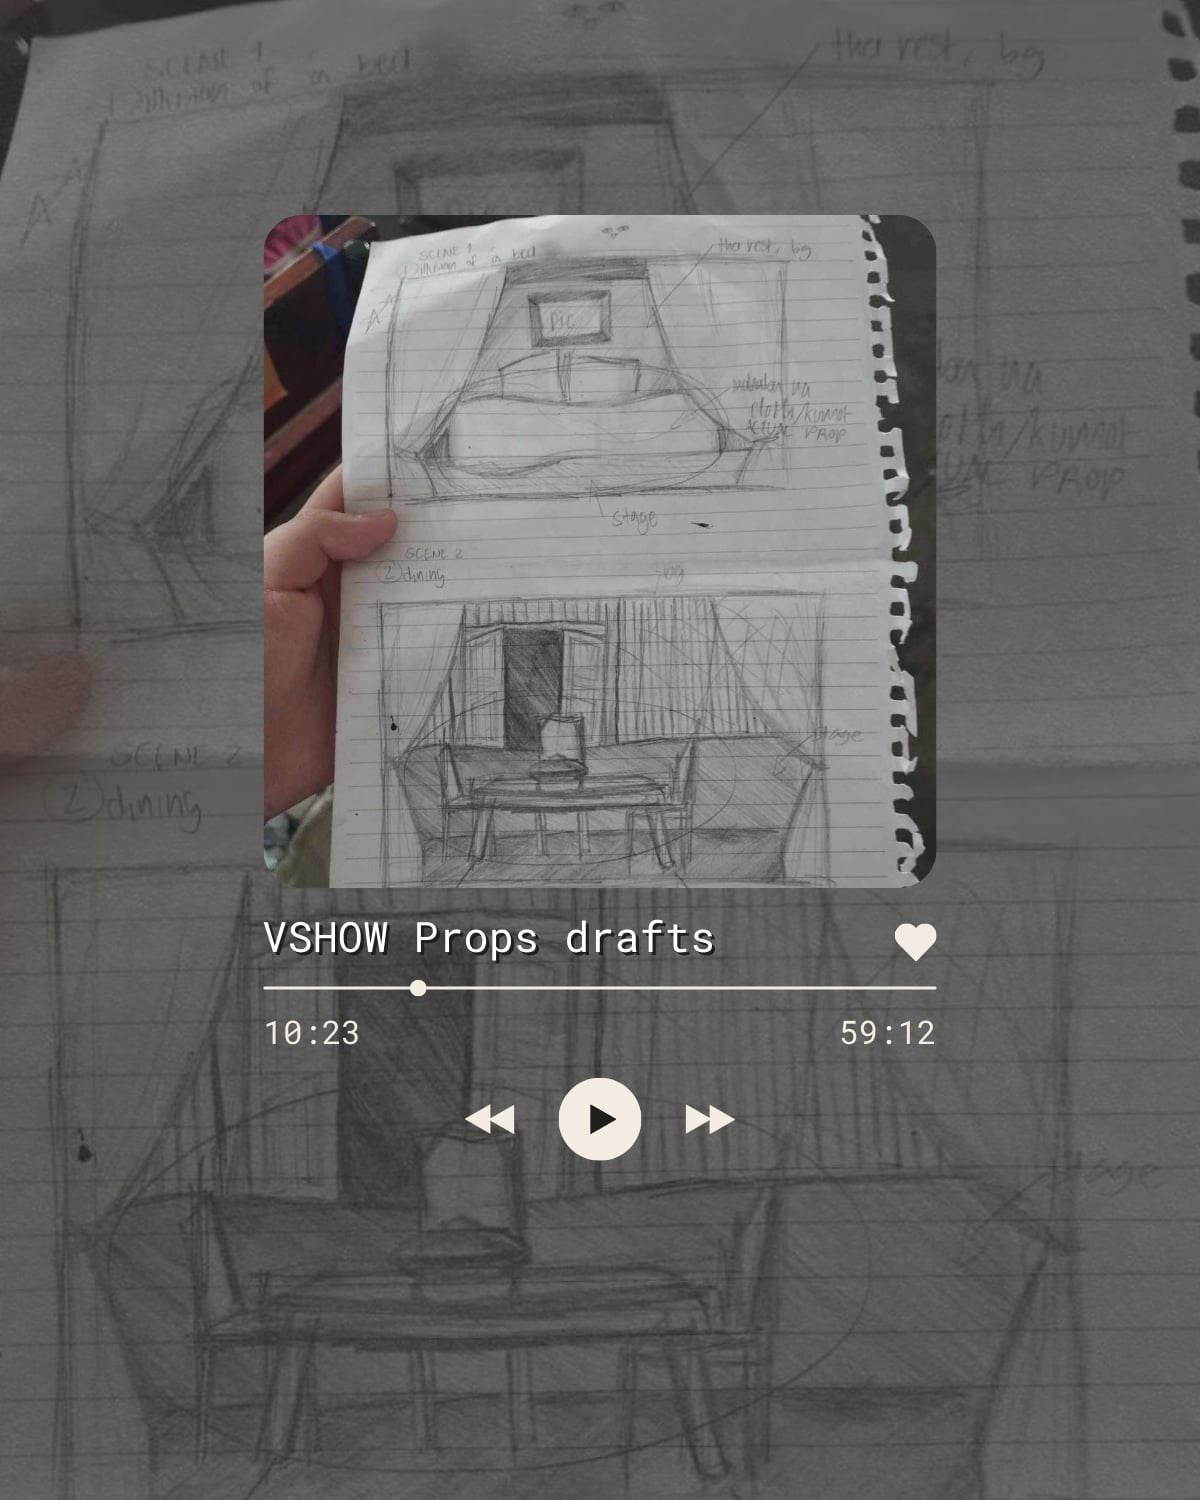 SCENE 1
1) illusion of a bed
the rest, bg
A
A
PIC
na
cloth/kumot
PROP
stage
SCENE 2
2 dining
bg
stage
VSHOW Props drafts
10:23
59:12